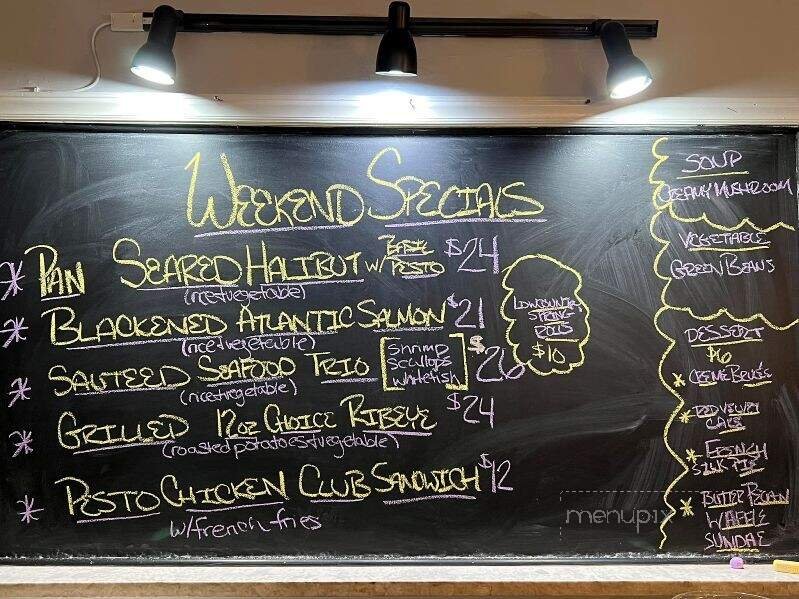 WEEKEND SPECIALS
* PAN SEARED HALIBUT W/ BASIL PESTO $24
(rice+vegetable)
* BLACKENED ATLANTIC SALMON $21
(rice+vegetable)
* SAUTEED SEAFOOD TRIO [shrimp scallops whitefish] $26
(rice+vegetable)
* GRILLED 12oz CHOICE RIBEYE $24
(roasted potatoes+vegetable)
* PESTO CHICKEN CLUB SANDWICH $12
w/french fries
LOWCOUNTRY
SPRING
ROLLS
$10
SOUP
CREAMY MUSHROOM
VEGETABLE
GREEN BEANS
DESSERT
$6
* CREME BRULE
* RED VELVET
CAKE
* FRENCH
SILK PIE
* BUTTER PECAN
WAFFLE
SUNDAE
menupix